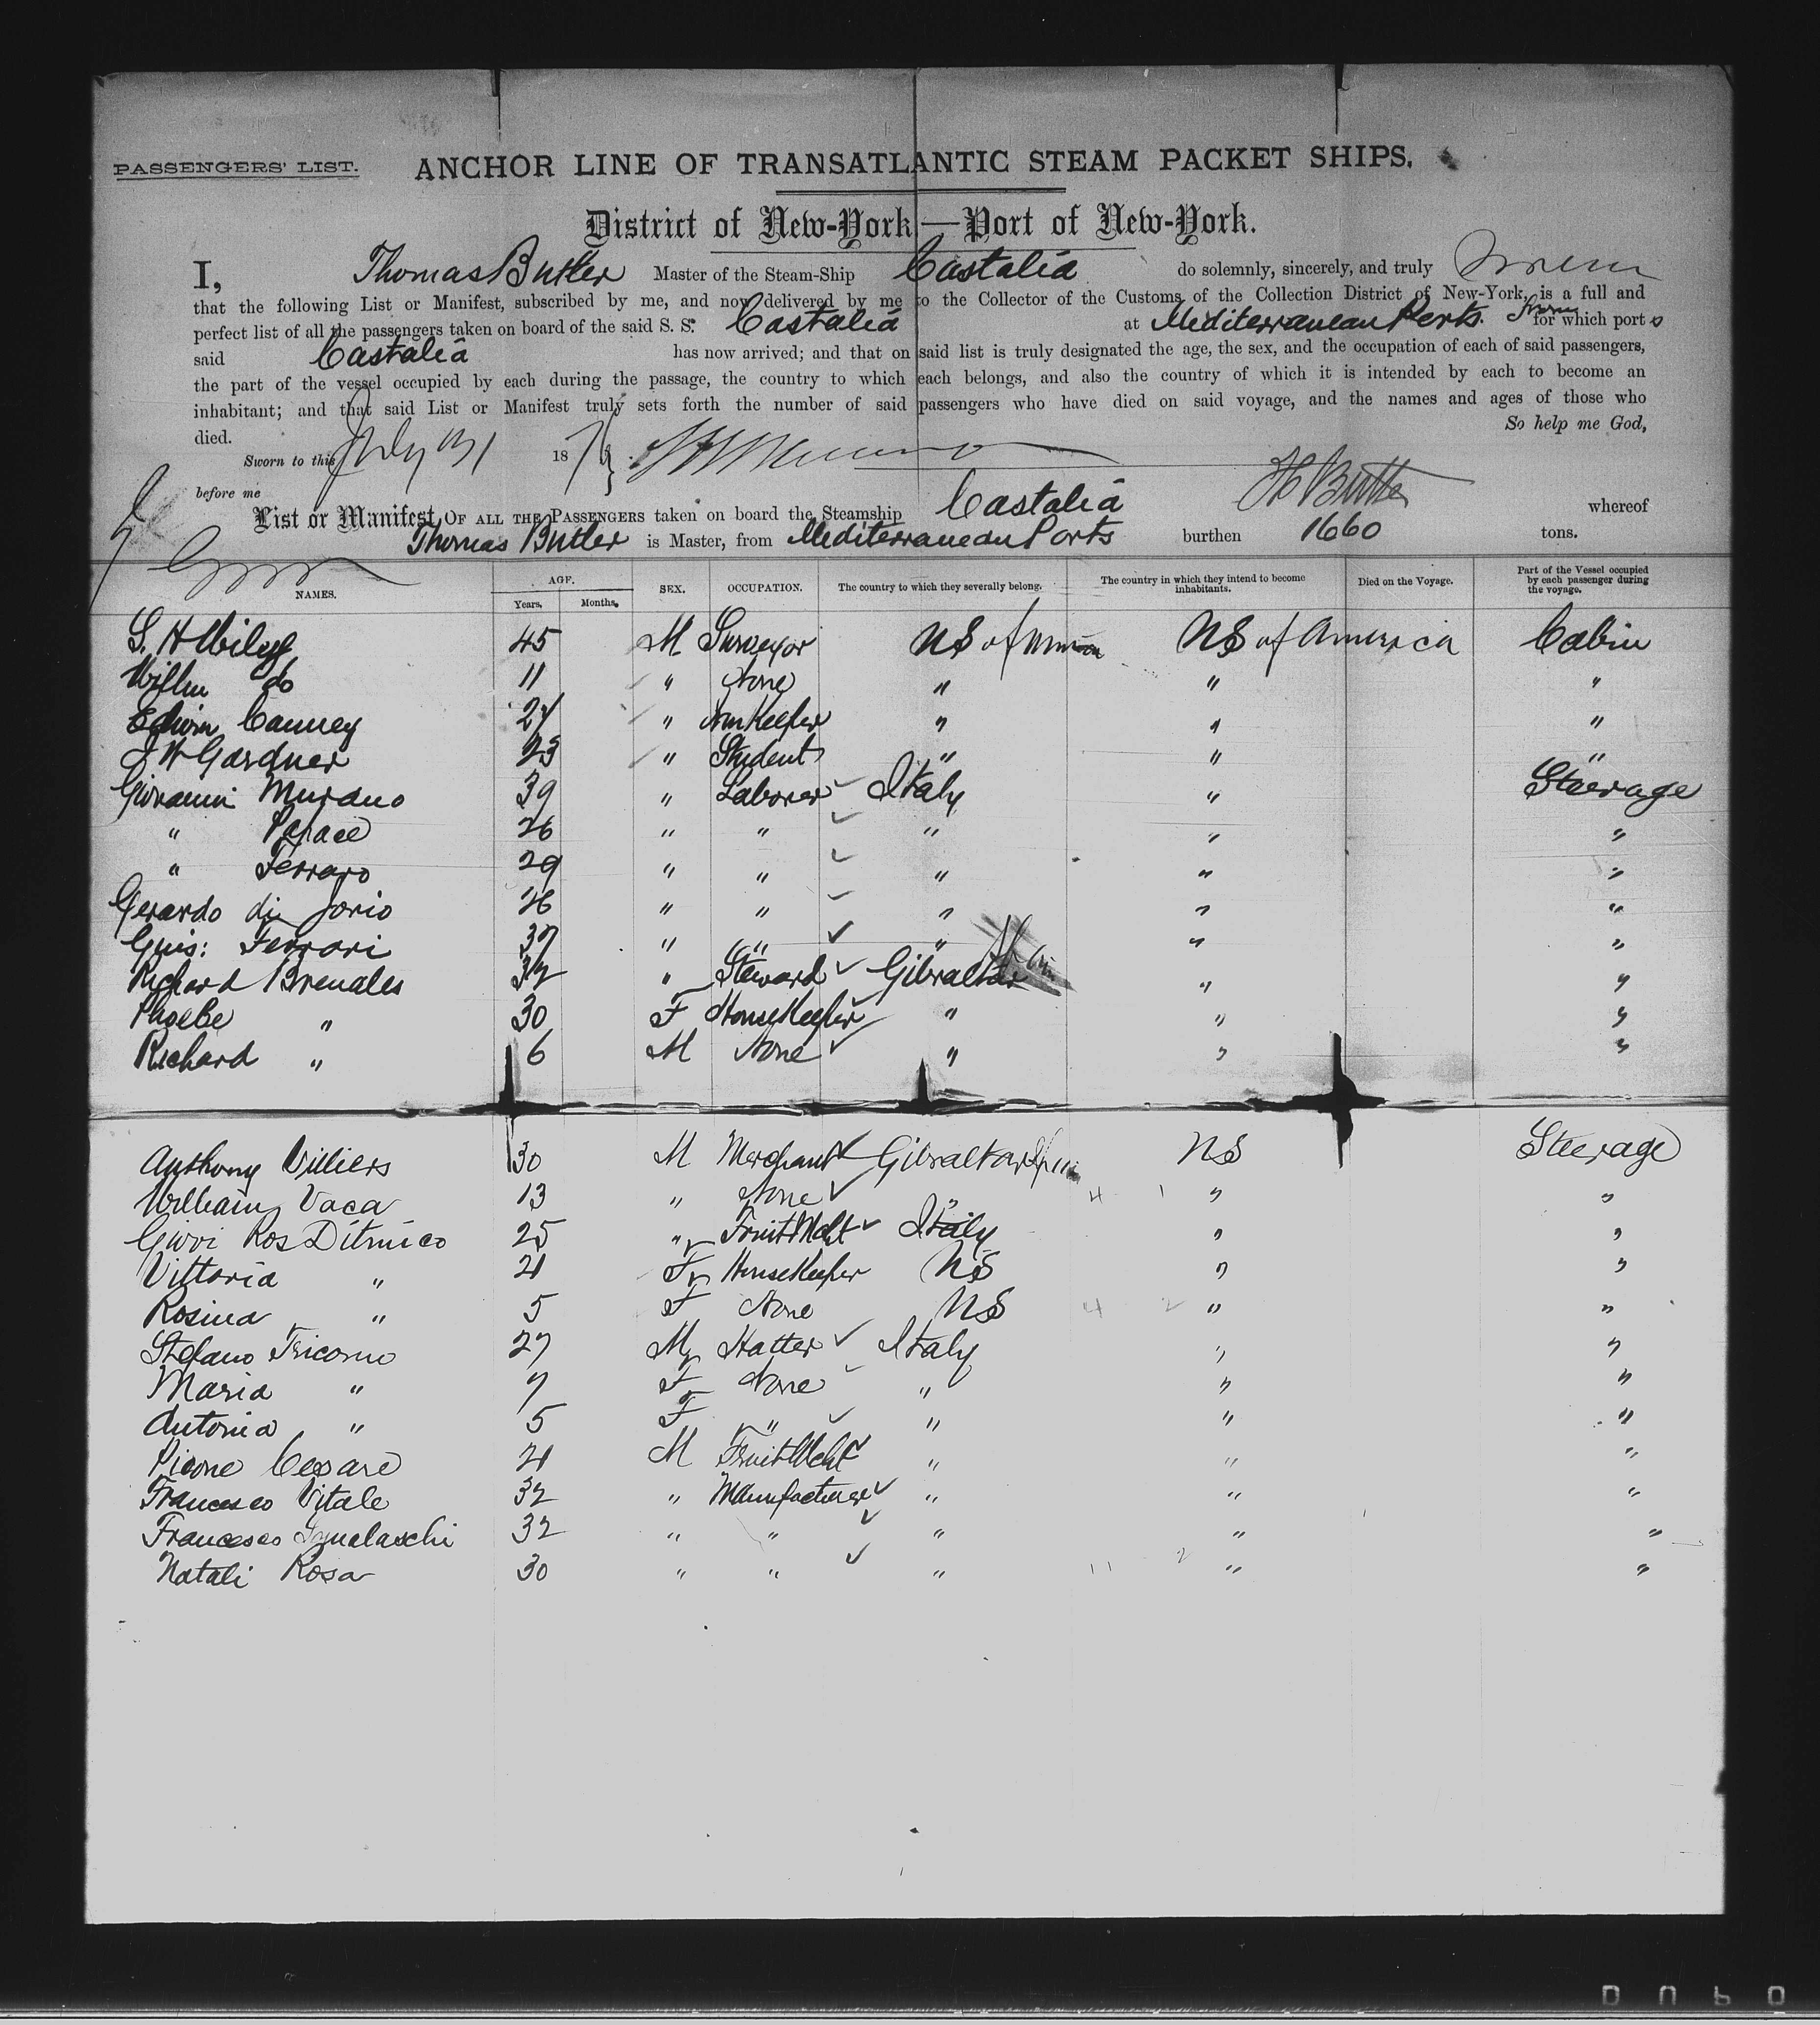 PASSENGERS' LIST. ANCHOR LINE OF TRANSATLANTIC STEAM PACKET SHIPS.
District of New-York—Port of New-York.
I, Thomas Butler Master of the Steam-Ship Castalia do solemnly, sincerely, and truly swear
that the following List or Manifest, subscribed by me, and now delivered by me to the Collector of the Customs of the Collection District of New-York, is a full and
perfect list of all the passengers taken on board of the said S. S. Castalia at Mediterranean Ports. from for which ports
said Castalia has now arrived; and that on said list is truly designated the age, the sex, and the occupation of each of said passengers,
the part of the vessel occupied by each during the passage, the country to which each belongs, and also the country of which it is intended by each to become an
inhabitant; and that said List or Manifest truly sets forth the number of said passengers who have died on said voyage, and the names and ages of those who
died. So help me God,
Sworn to this July 31 187
before me Butler
List or Manifest OF ALL THE PASSENGERS taken on board the Steamship Castalia whereof
Thomas Butler is Master, from Mediterranean Ports burthen 1660 tons.
NAMES. AGE. Years. Months. SEX. OCCUPATION. The country to which they severally belong. The country in which they intend to become inhabitants. Died on the Voyage. Part of the Vessel occupied by each passenger during the voyage.
S. H Wiley 45 M Surveyor US of US of America Cabin
do 11 " None " " "
Edwin Canney 24 " " " "
J H Gardner 23 " Student " " "
Giovanni Murano 39 " Laborer Italy " Steerage
" Palace 26 " " " " "
" Ferraro 29 " " " " "
Gerardo di Jorio 26 " " " " "
Guis: Ferrari 37 " " " " "
Richard Brenales 32 " Steward Gibraltar " "
Phoebe " 30 F HouseKeeper " " "
Richard " 6 M None " " "
Anthony Villiers 30 M Merchant Gibraltar US Steerage
William Vaca 13 " None " " "
Giovi Ros Ditmico 25 " Fruit Mcht Italy " "
Vittoria " 21 F HouseKeeper US " "
Rosina " 5 F None US " "
Stefano Tricomo 27 M Hatter Italy " "
Maria " 7 F None " " "
Antonia " 5 F " " " "
Picone Cesare 21 M Fruit Mcht " " "
Francesco Vitale 32 " Manufacturer " " "
Francesco 32 " " " " "
Natali Rosa 30 " " " " "